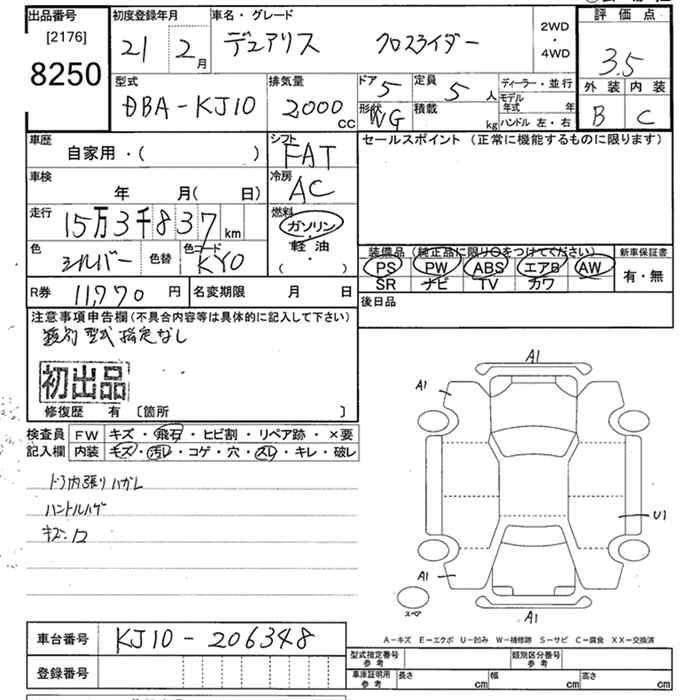 出品番号
[2176]
8250
初度登録年月
21 2月
車名・グレード
デュアリス クロスライダー
2WD
・
4WD
評価点
3.5
外装 内装
B C
型式
DBA-KJ10
排気量
2000cc
ドア 5
定員 5人
形状 WG
積載 kg
ディーラー・並行
モデル年式 年
ハンドル 左・右
車歴
自家用・( )
シフト
FAT
セールスポイント (正常に機能するものに限ります)
車検
年 月( 日)
冷房
AC
走行
15万3千837km
燃料
ガソリン・
軽油
( ・ )
色
シルバー
色替
色コード
KY0
装備品 (純正品に限り○をつけてください)
PS PW ABS エアB AW
SR ナビ TV カワ
新車保証書
有・無
R券 11,770円
名変期限 月 日
後日品
注意事項申告欄(不具合内容等は具体的に記入して下さい)
類別型式指定なし
初出品
修復歴 有 〔箇所 〕
検査員 FW キズ・飛石・ヒビ割・リペア跡・×要
記入欄 内装 キズ・汚レ・コゲ・穴・スレ・キレ・破レ
ドア内張りハガレ
ハンドルハゲ
A1
A1
U1
A1
A1
スペア
A-キズ E-エクボ U-凹み W-補修跡 S-サビ C-腐食 XX-交換済
車台番号 KJ10-206348
登録番号
型式指定番号
参考
類別区分番号
参考
車庫証明用
参考
長さ cm
幅 cm
高さ cm